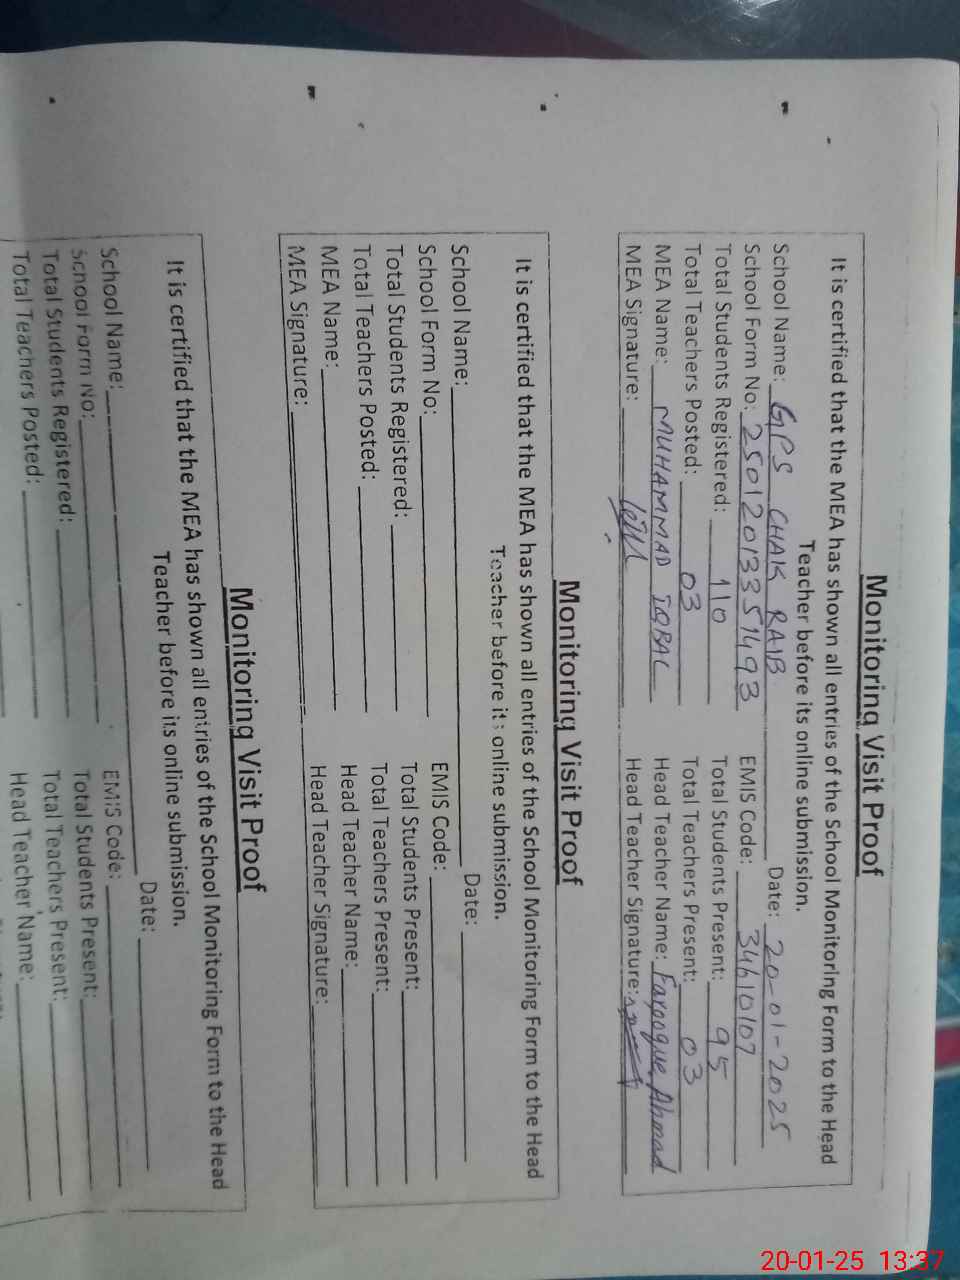 Monitoring Visit Proof
It is certified that the MEA has shown all entries of the School Monitoring Form to the Head
Teacher before its online submission.
School Name: GPS CHAK RAIB Date: 20-01-2025
School Form No: 25012013351493 EMIS Code: 34610107
Total Students Registered: 110 Total Students Present: 95
Total Teachers Posted: 03 Total Teachers Present: 03
MEA Name: MUHAMMAD IQBAL Head Teacher Name: Farooque Ahmad
MEA Signature: Head Teacher Signature:
Monitoring Visit Proof
It is certified that the MEA has shown all entries of the School Monitoring Form to the Head
Teacher before its online submission.
School Name: Date:
School Form No: EMIS Code:
Total Students Registered: Total Students Present:
Total Teachers Posted: Total Teachers Present:
MEA Name: Head Teacher Name:
MEA Signature: Head Teacher Signature:
Monitoring Visit Proof
It is certified that the MEA has shown all entries of the School Monitoring Form to the Head
Teacher before its online submission.
School Name: Date:
School Form No: EMIS Code:
Total Students Registered: Total Students Present:
Total Teachers Posted: Total Teachers Present:
Head Teacher Name:
20-01-25 13:37